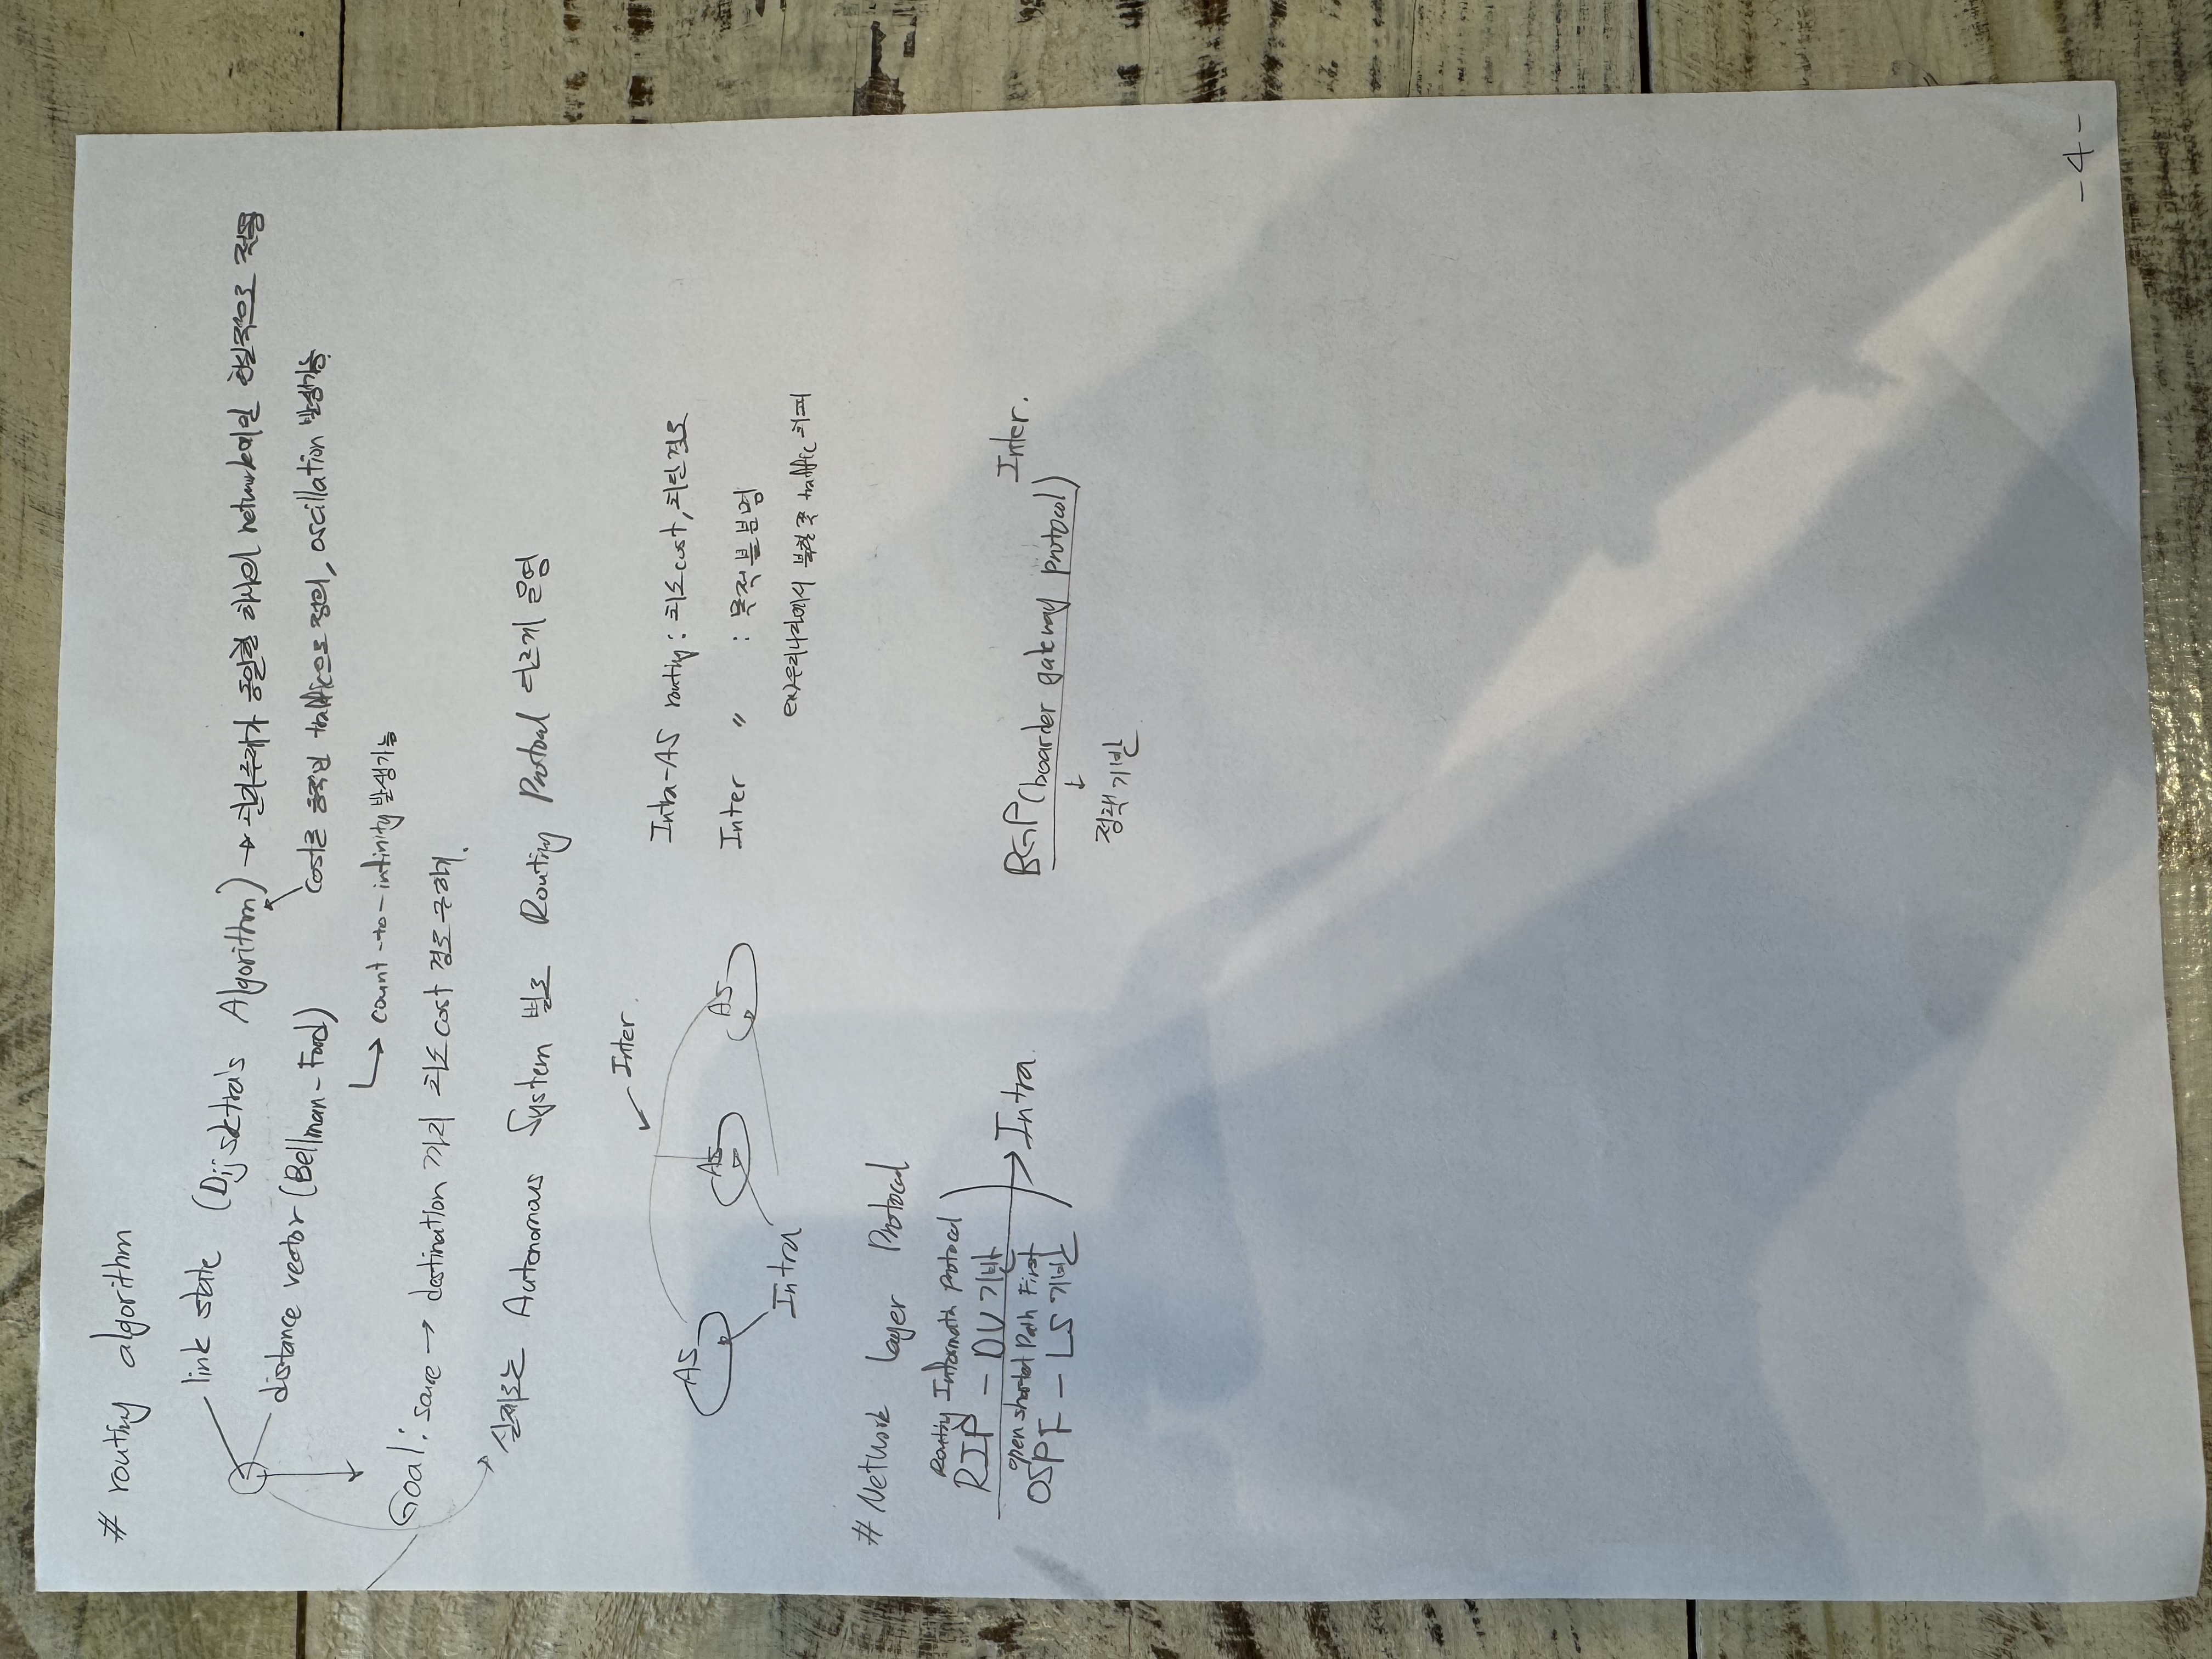 # routing algorithm
link state (Dijsktra's Algorithm) → 관리주체가 동일한 하나의 network에만 현실적으로 적용
distance vector (Bellman-Ford)
cost를 traffic으로 정의, oscillation 발생가능
count-to-infinity 발생가능
Goal: soure → destination 까지 최소 cost 경로 구하기.
실제로는 Autonomous System 별로 Routing Protocol 다르게 운영
Inter.
AS
AS
AS
Intra
Intra-AS routing : 최소 cost, 최단 경로
Inter 〃 : 목적 불분명
ex) 우리나라에서 북한 쪽 traffic 회피
# Network layer Protocol
Routing Protocol
RIP - DV 기반
open shortest Path First
OSPF - LS 기반
Intra.
BGP (boarder gateway protocol) Inter.
정책 기반
- 4 -